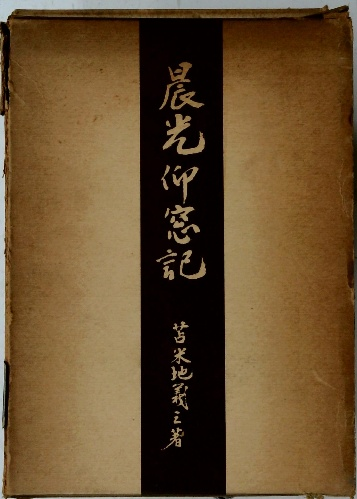 晨光仰窓記
苫米地義三著